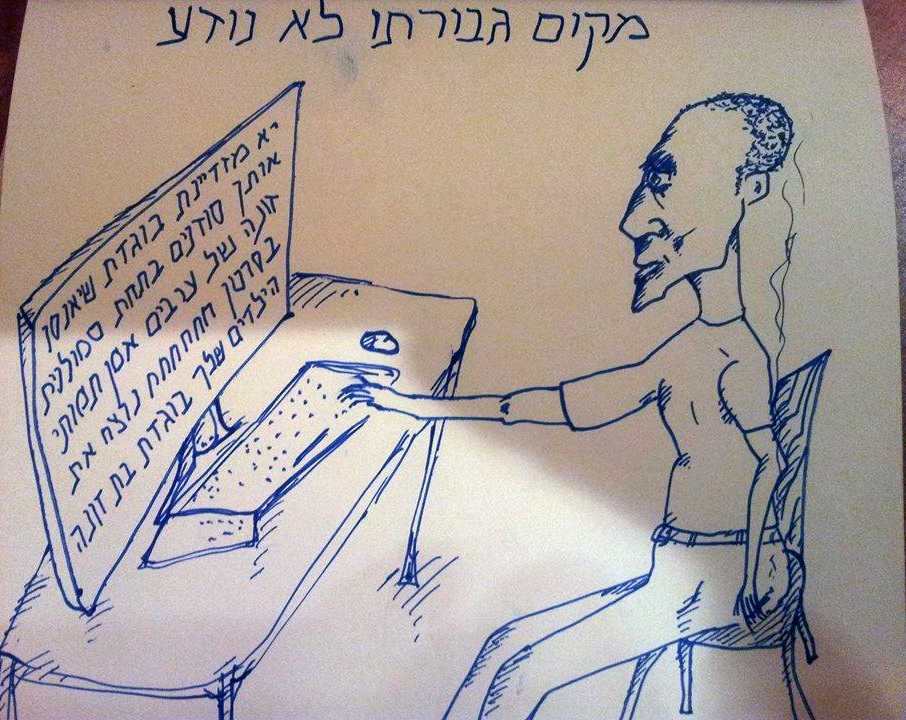 מקום גבורתו לא נודע
יא מזדיינת בוגדת שיאנסו
אותך סודנים בתחת סמולנית
זונה של ערבים אמן תמותי
בסרטן חחחחחח נלצח את
הילדים שלך בוגדת בת זונה